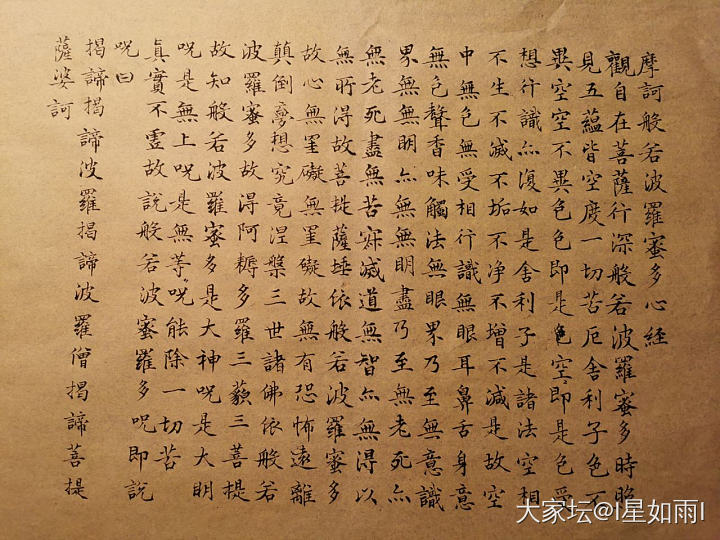 摩訶般若波羅蜜多心経
觀自在菩薩行深般若波羅蜜多時照
見五蘊皆空度一切苦厄舍利子色不
異空空不異色色即是色空即是色受
想行識亦復如是舍利子是諸法空相
不生不滅不垢不净不增不減是故空
中無色無受相行識無眼耳鼻舌身意
無色聲香味觸法無眼界乃至無意識
界無無明亦無無明盡乃至無老死亦
無老死盡無苦寂滅道無智亦無得以
無所得故菩提薩埵依般若波羅蜜多
故心無罣礙無罣礙故無有恐怖遠離
顛倒夢想究竟涅槃三世諸佛依般若
波羅蜜多故得阿耨多羅三藐三菩提
故知般若波羅蜜多是大神呪是大明
呪是無上呪是無等呪能除一切苦
真實不虛故說般若波蜜羅多呪即說
呪曰
揭諦揭諦波羅揭諦波羅僧揭諦菩提
薩婆訶
大家坛@I星如雨I